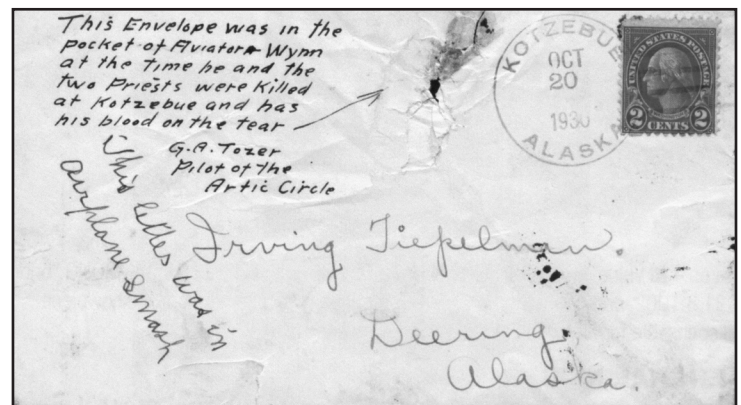 This Envelope was in the
pocket of Aviator Wynn
at the time he and the
two Priests were killed
at Kotzebue and has
his blood on the tear
G.A. Tozer
Pilot of the
Artic Circle
This letter was in
airplane smash
KOTZEBUE
OCT
20
1930
ALASKA
UNITED STATES POSTAGE
2 CENTS 2
Irving Tiepelman.
Deering,
Alaska.